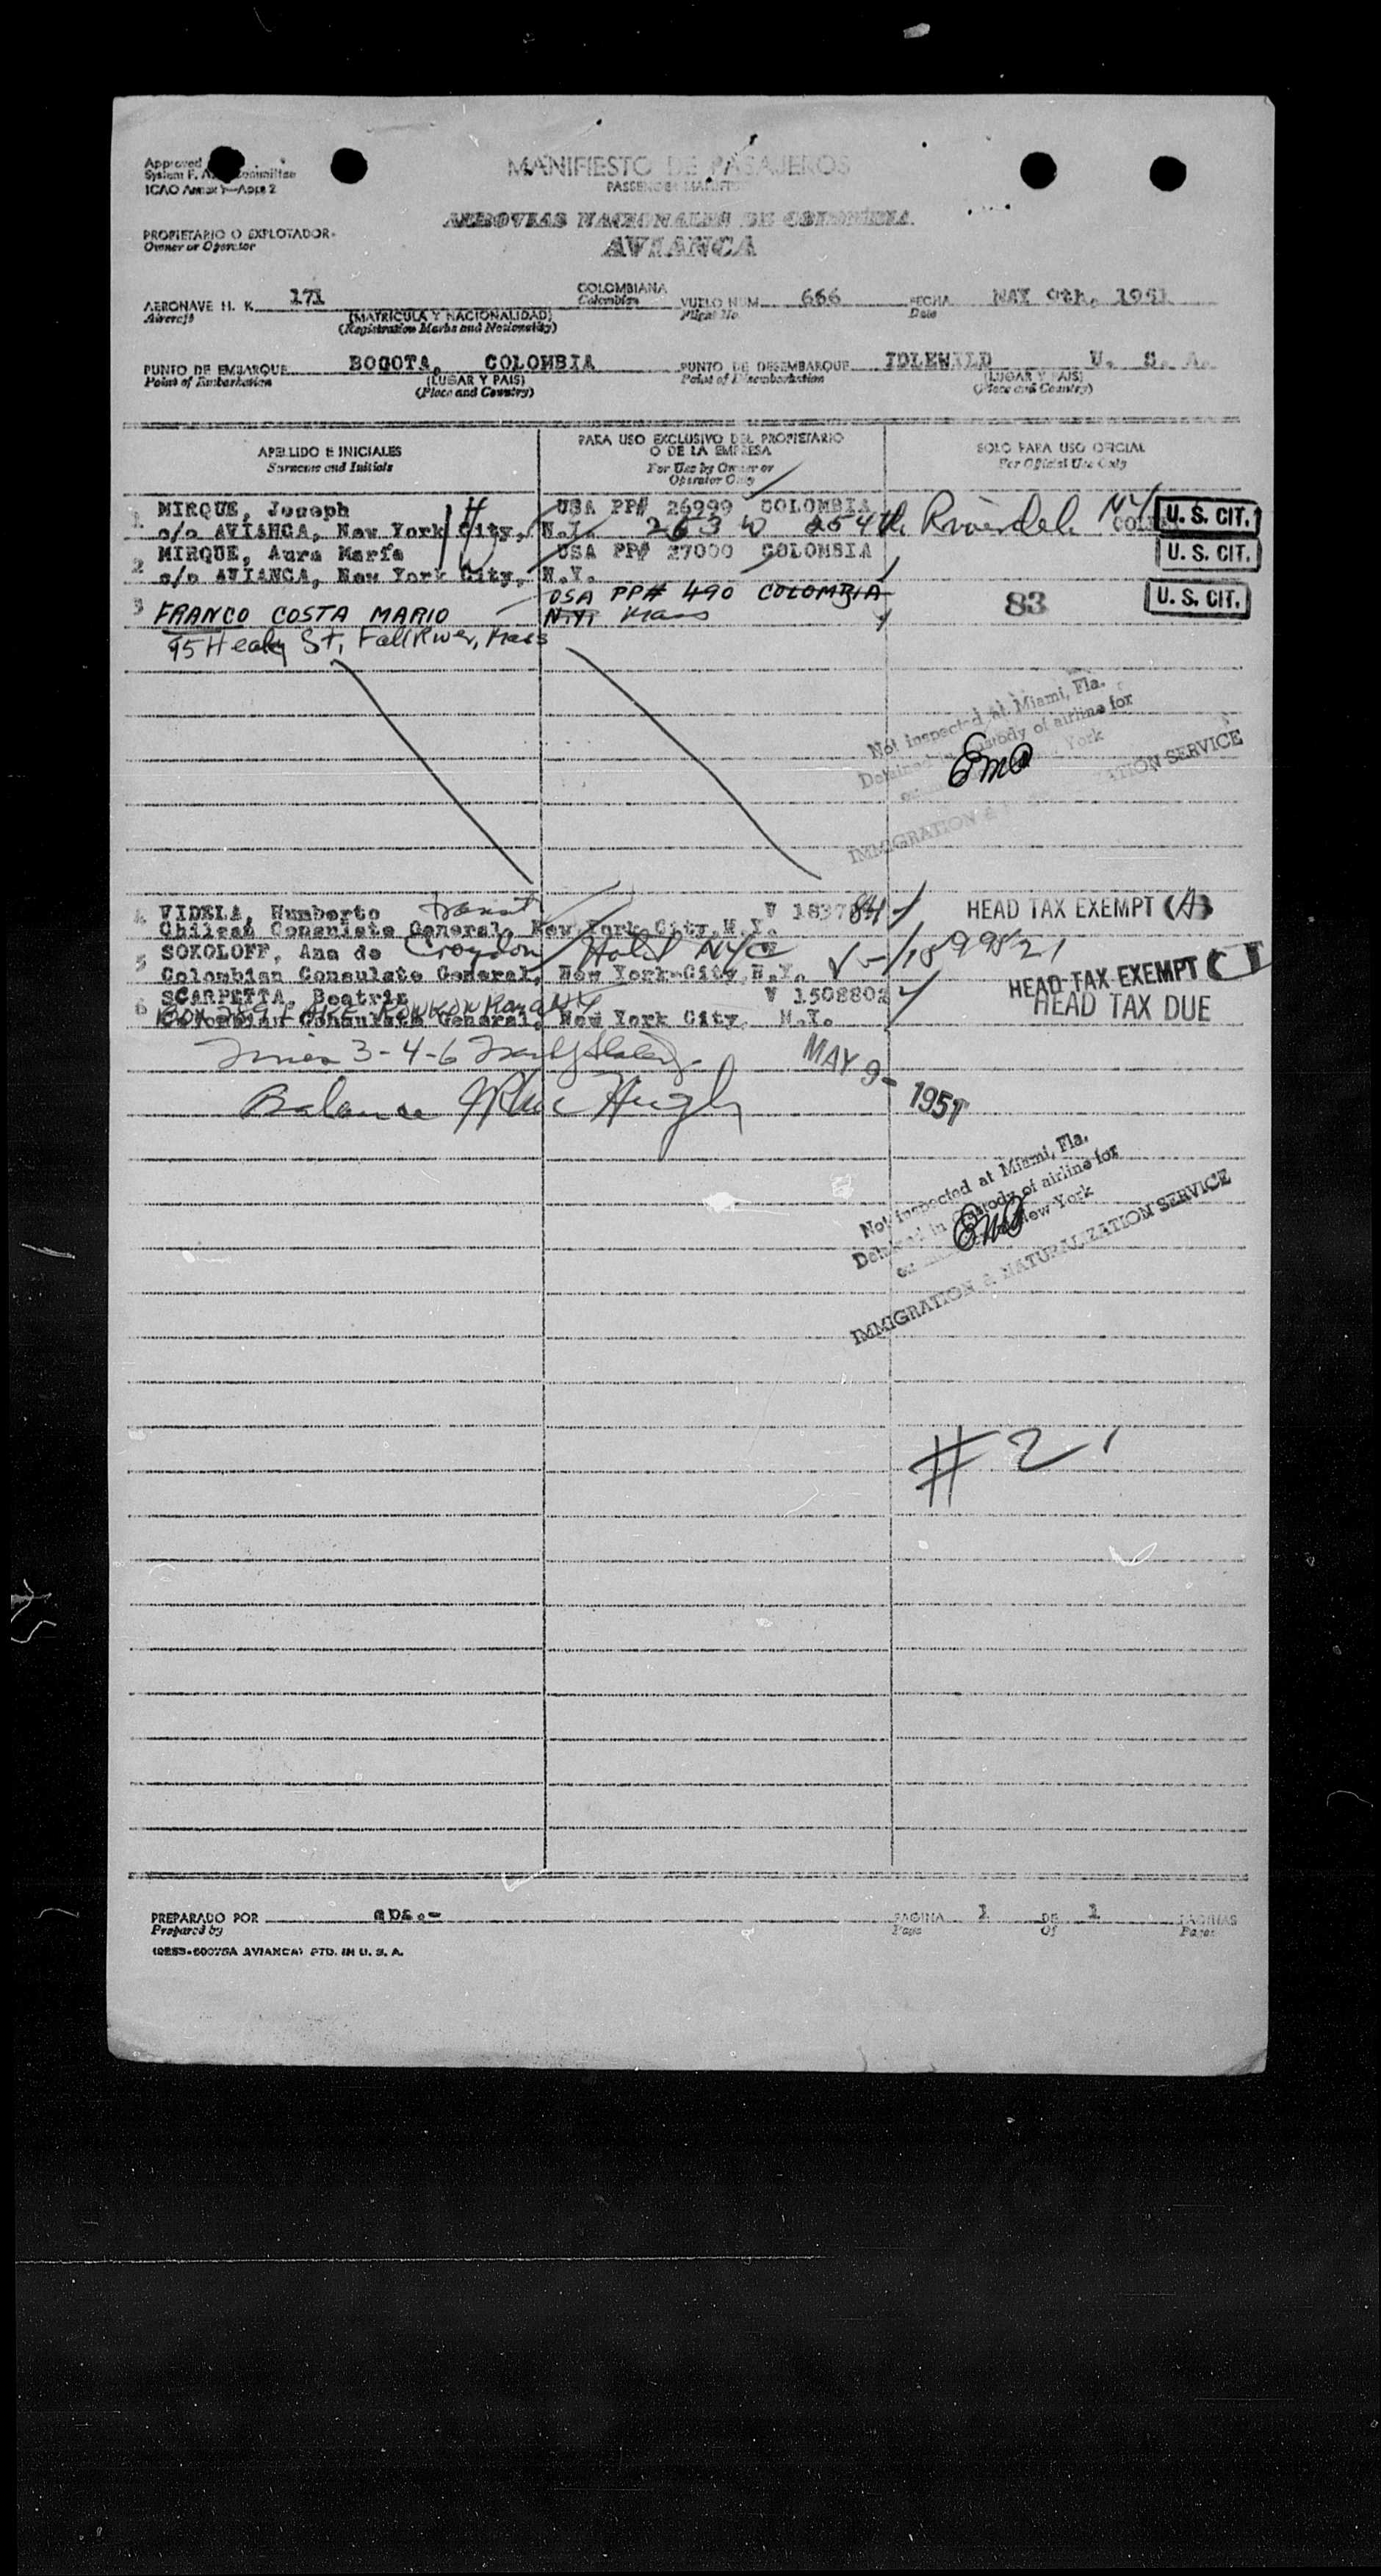 Approved
System F. A. Committee
ICAO Annex 9—Appx 2
MANIFIESTO DE PASAJEROS
PASSENGER MANIFEST
AEROVIAS NACIONALES DE COLOMBIA
AVIANCA
PROPIETARIO O EXPLOTADOR
Owner or Operator
AERONAVE H. K. 171 COLOMBIANA VUELO NUM. 666 FECHA MAY 9th, 1951
Aircraft Colombian Flight No. Date
(MATRICULA Y NACIONALIDAD)
(Registration Marks and Nationality)
PUNTO DE EMBARQUE BOGOTA, COLOMBIA PUNTO DE DESEMBARQUE IDLEWILD U. S. A.
Point of Embarkation (LUGAR Y PAIS) Point of Disembarkation (LUGAR Y PAIS)
(Place and Country) (Place and Country)
APELLIDO E INICIALES PARA USO EXCLUSIVO DEL PROPIETARIO SOLO PARA USO OFICIAL
Surname and Initials O DE LA EMPRESA For Official Use Only
For Use by Owner or
Operator Only
1 MIRQUE, Joseph USA PP# 26999 COLOMBIA
c/o AVIANCA, New York City, N.Y. 263 W 254th Riverdale NY U. S. CIT.
2 MIRQUE, Aura María USA PP# 27000 COLOMBIA U. S. CIT.
c/o AVIANCA, New York City, N.Y.
3 FRANCO COSTA MARIO USA PP# 490 COLOMBIA 83 U. S. CIT.
N.Y. Mass
95 Healy St, Fall River, Mass
Not inspected at Miami, Fla.
Detained in custody of airline for
York
EmO
IMMIGRATION & ATION SERVICE
4 VIDELA, Humberto transit V 183784 HEAD TAX EXEMPT (A)
Chilean Consulate General, New York City, N.Y.
5 SOKOLOFF, Ana de Croydon Hotel NYC V-1899821
Colombian Consulate General, New York City, N.Y. HEAD TAX EXEMPT
6 SCARPETTA, Beatriz V 1508802 HEAD TAX DUE
Colombian Consulate General, New York City, N.Y.
3-4-6
Balance
MAY 9- 1951
Not inspected at Miami, Fla.
Detained in custody of airline for
New York
EmO
IMMIGRATION & NATURALIZATION SERVICE
#2
PREPARADO POR PAGINA 1 DE 1 PAGINAS
Prepared by Page Of Pages
AVIANCA) PTD. IN U. S. A.